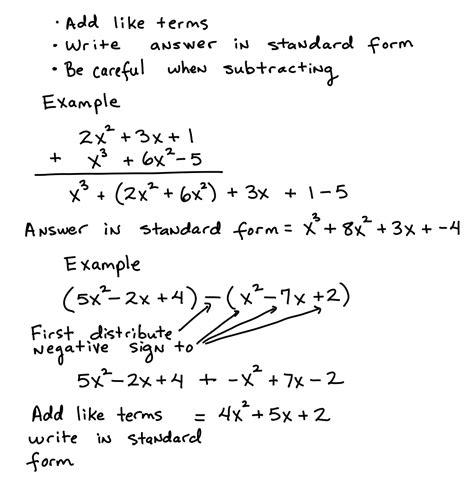 • Add like terms
• Write answer in standard form
• Be careful when subtracting
Example
2x² + 3x + 1
+ x³ + 6x² - 5
x³ + (2x² + 6x²) + 3x + 1 - 5
Answer in standard form = x³ + 8x² + 3x + -4
Example
(5x² - 2x + 4) - (x² - 7x + 2)
First distribute
negative sign to
5x² - 2x + 4 + -x² + 7x - 2
Add like terms = 4x² + 5x + 2
write in standard
form